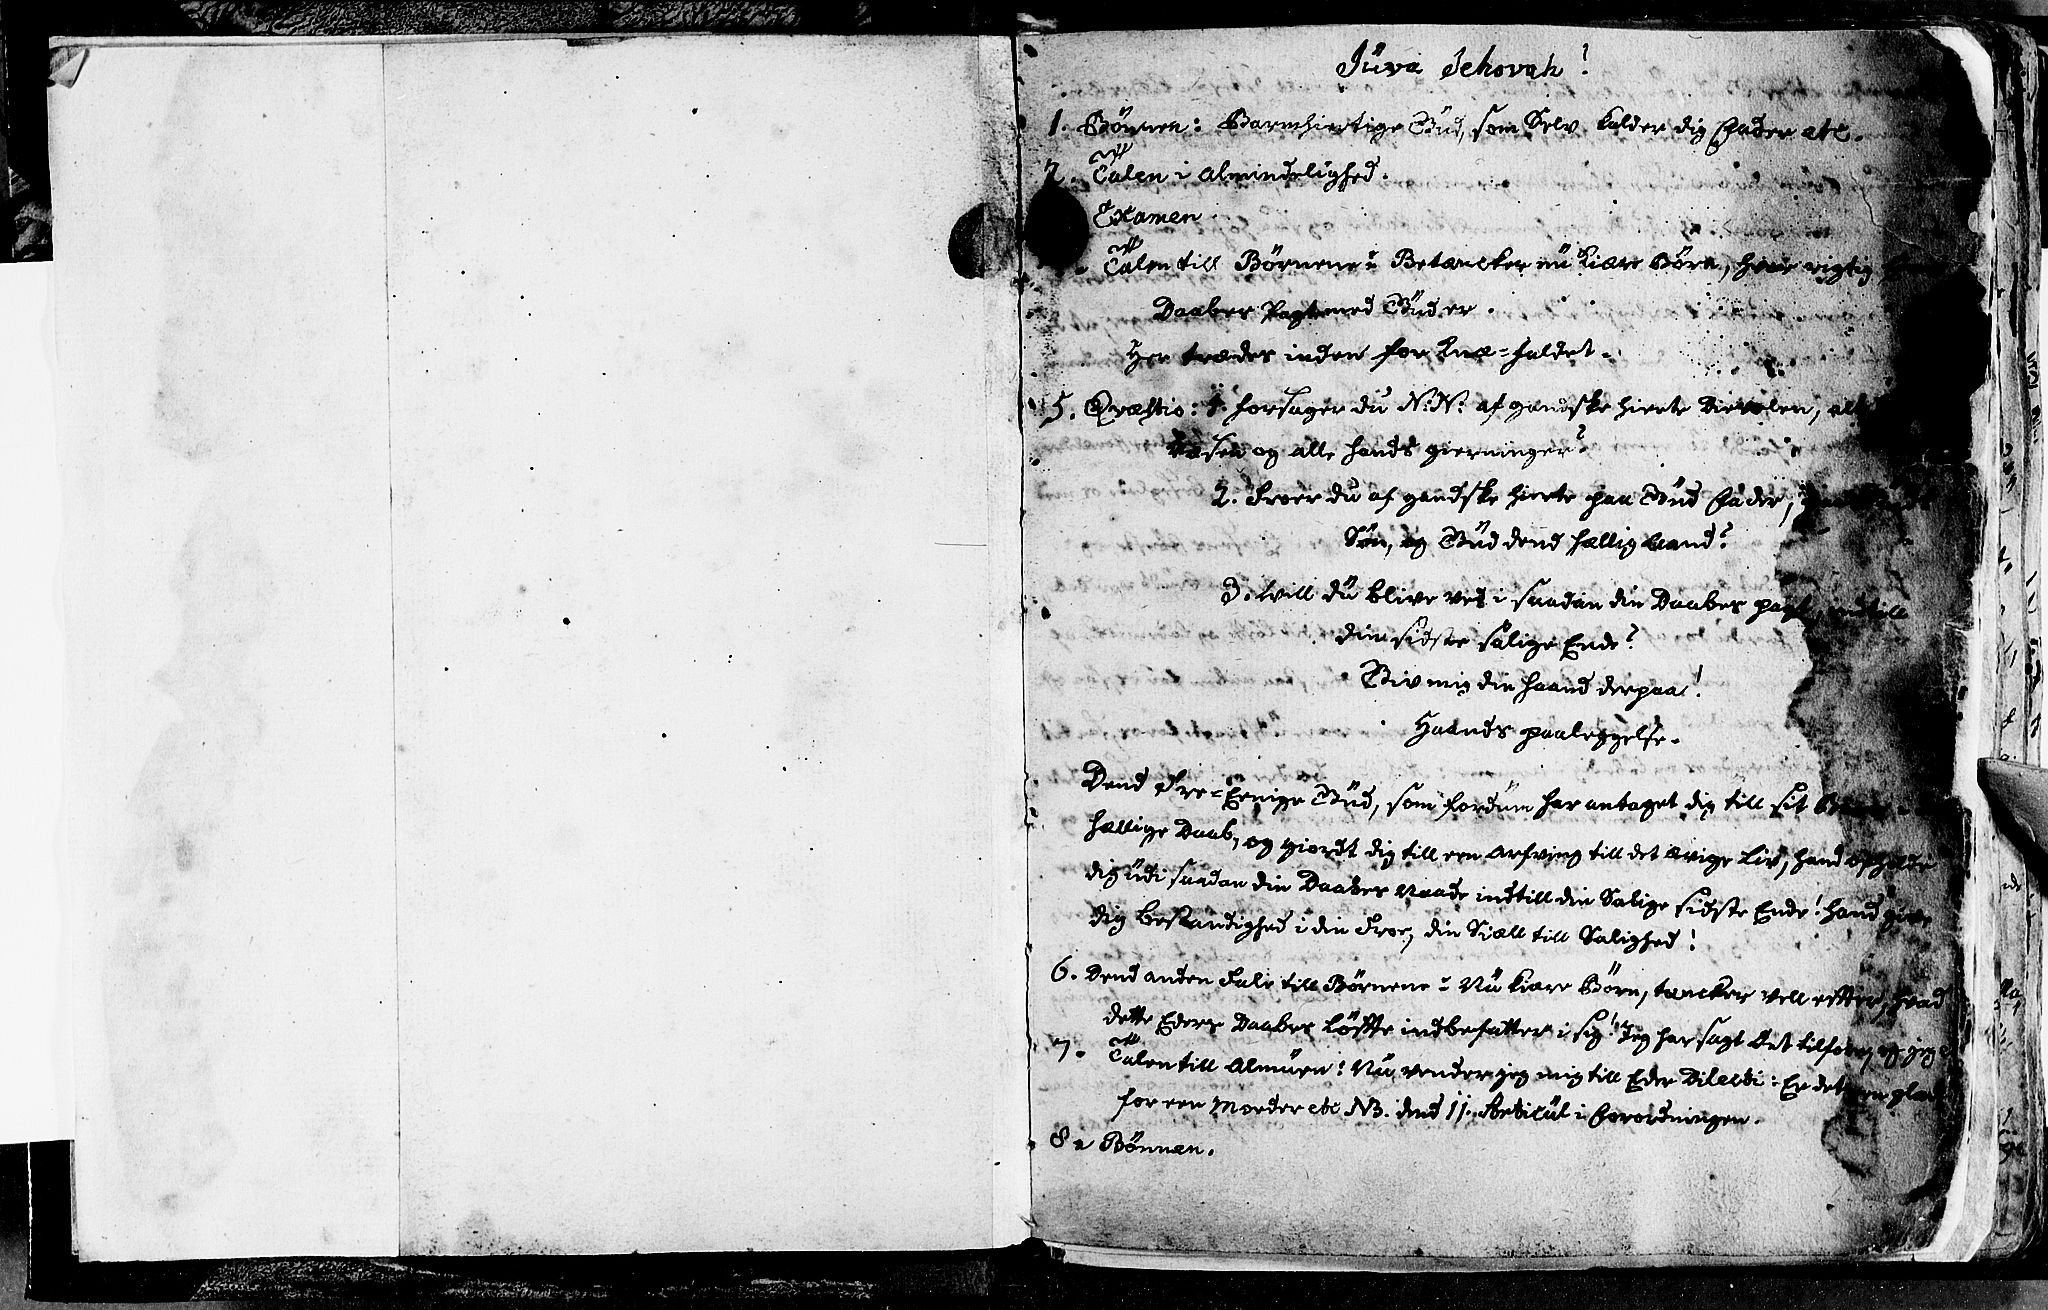 Juva Jehovah!
1. Bönnen: Barmhiertige Gud, som Selv kalder dig Fader etc.
2. Talen i Almindelighed.
Examen
Talen till Börnene: Betæncker nu kiære Börn, hvor rigtig
Daabes Pagt med Gud er.
Her trædes inden for Knæ-faldet.
5. Qvæstio: 1. forsager du N: N: af gandske hierte Dievelen, alt
Væsen og alle hands gierninger?
2. Troer du af gandske hierte paa Gud Fader,
Sön, og Gud dend hellig Aand?
3. Will du blive ved i saadan din Daabes pagt, indtill
dinn sidste salige Ende?
Giv mig din haand derpaa!
Haands paaleggelse.
Dend Tre-Eenige Gud, som fordum har antaget dig till sit
hellige Daab, og giordt dig till een Arfving till det ævige Liv, hand opholde
dig udi saadan din Daabes Naade indtill din Salige sidste Ende! hand give
dig bestandighed i din Troe, din Siæll till Salighed!
6. Dend anden Tale till Börnene: Nu kiære Börn, tæncker vell effter, hvad
dette Eders Daabes Löffte indbefatter i sig! Jeg har sagt det tilforn, og jeg
7. Talen till Almuen: Nu vender jeg mig till Eder Dilecti: Er det een glæde
for een Moder etc NB. dend 11. Articul i Forordningen.
8. Bönnen.